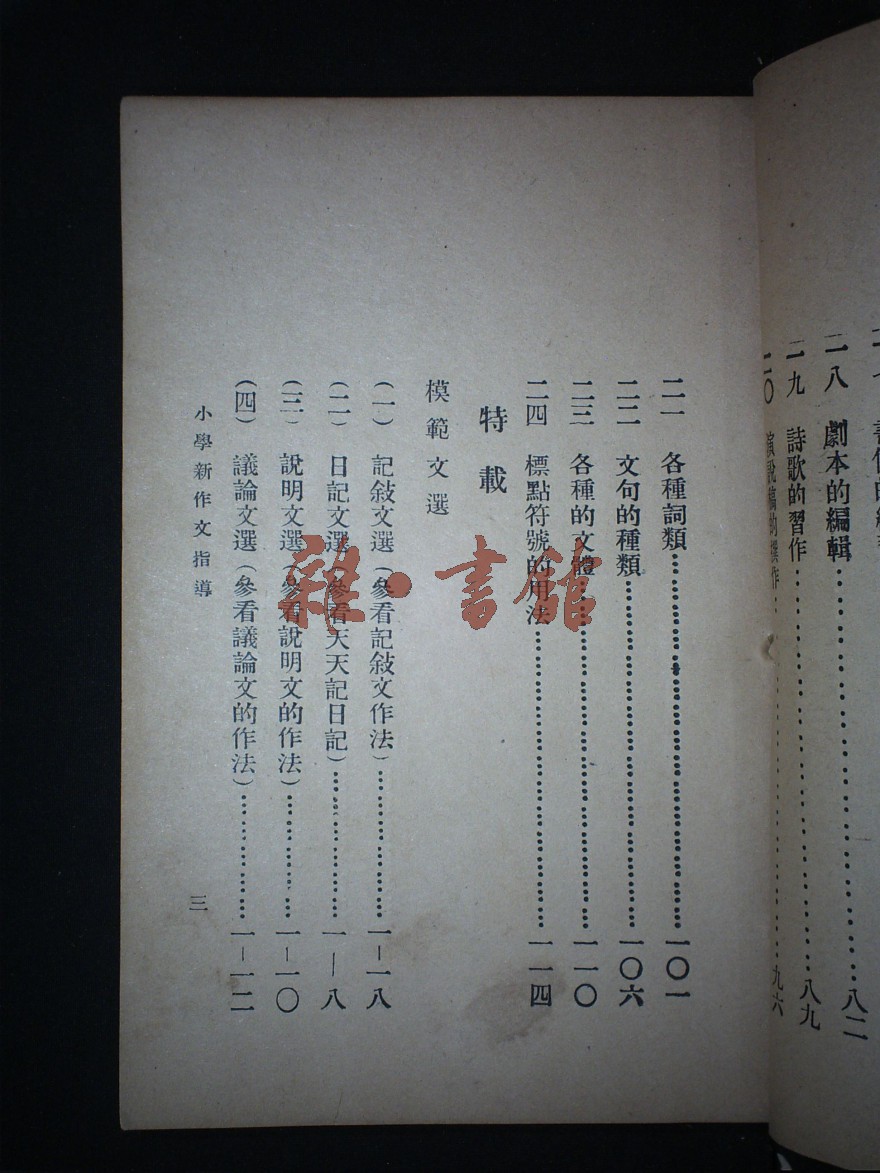 一八 劇本的編輯……八二
一九 詩歌的習作……八九
二〇 演說稿的撰作……九六
二一 各種詞類……一〇一
二二 文句的種類……一〇六
二三 各種的文體……一一〇
二四 標點符號的用法……一一四
特載
模範文選
(一) 記敍文選(參看記敍文作法)……一－一八
(二) 日記文選(參看天天記日記)……一－八
(三) 說明文選(參看說明文的作法)……一－一〇
(四) 議論文選(參看議論文的作法)……一－一二
小學新作文指導
三
雜·書館